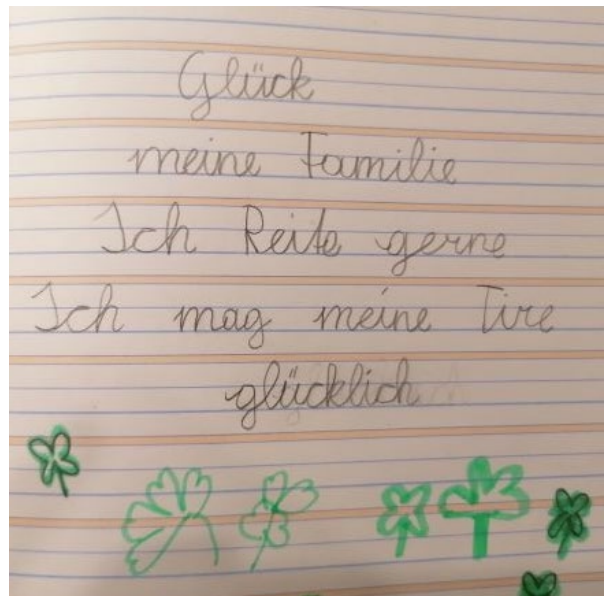 Glück
meine Familie
Ich Reite gerne
Ich mag meine Tire
glücklich